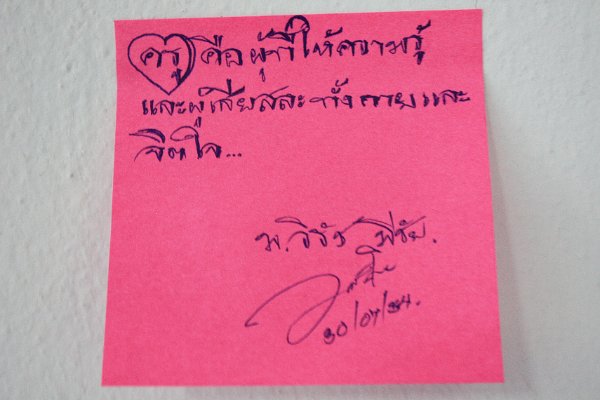 ครู คือผู้ที่ให้ความรู้
และผู้เสียสละทั้งกายและ
จิตใจ...
30/07/54.